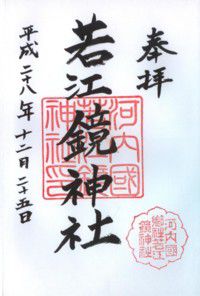 奉拝
若江鏡神社
平成二十八年十二月二十五日
河内國
若江鏡
神社印
河内國
郷社若江
鏡神社